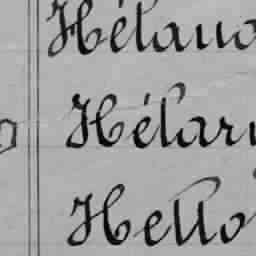 Hélauo
Hélary
Hello